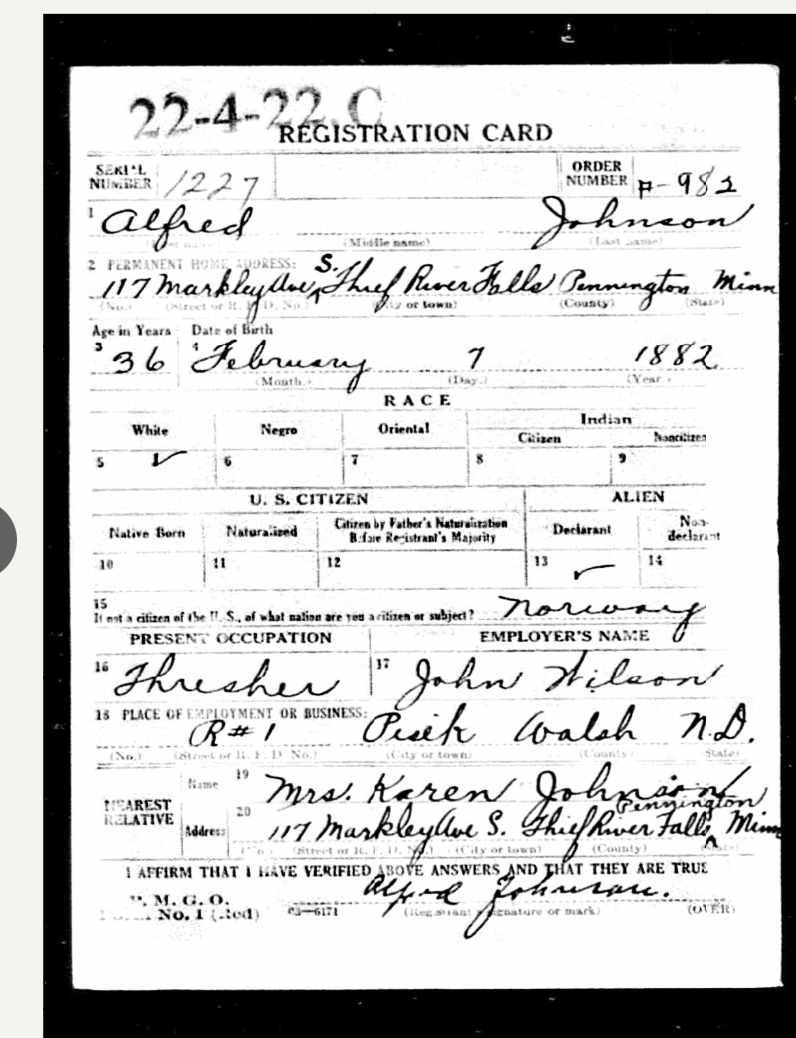 22-4-22.C
REGISTRATION CARD
SERIAL NUMBER 1227 ORDER NUMBER A-982
1 Alfred Johnson
(First name) (Middle name) (Last name)
2 PERMANENT HOME ADDRESS:
117 Markley Ave S. Thief River Falls Pennington Minn
(No.) (Street or R. F. D. No.) (City or town) (County) (State)
Age in Years Date of Birth
3 36 4 February 7 1882
(Month.) (Day.) (Year.)
RACE
White Negro Oriental Indian
Citizen Noncitizen
5 ✓ 6 7 8 9
U. S. CITIZEN ALIEN
Native Born Naturalized Citizen by Father's Naturalization Before Registrant's Majority Declarant Non-declarant
10 11 12 13 ✓ 14
15
If not a citizen of the U. S., of what nation are you a citizen or subject? Norway
PRESENT OCCUPATION EMPLOYER'S NAME
16 Thresher 17 John Wilson
18 PLACE OF EMPLOYMENT OR BUSINESS:
R#1 Pisek Walsh N.D.
(No.) (Street or R. F. D. No.) (City or town) (County) (State)
NEAREST RELATIVE
Name 19 Mrs. Karen Johnson
Address 20 117 Markley Ave S. Thief River Falls, Pennington Minn
(No.) (Street or R. F. D. No.) (City or town) (County) (State)
I AFFIRM THAT I HAVE VERIFIED ABOVE ANSWERS AND THAT THEY ARE TRUE
P. M. G. O.
Form No. 1 (Red) 03—6171 Alfred Johnson.
(Registrant's signature or mark) (OVER)